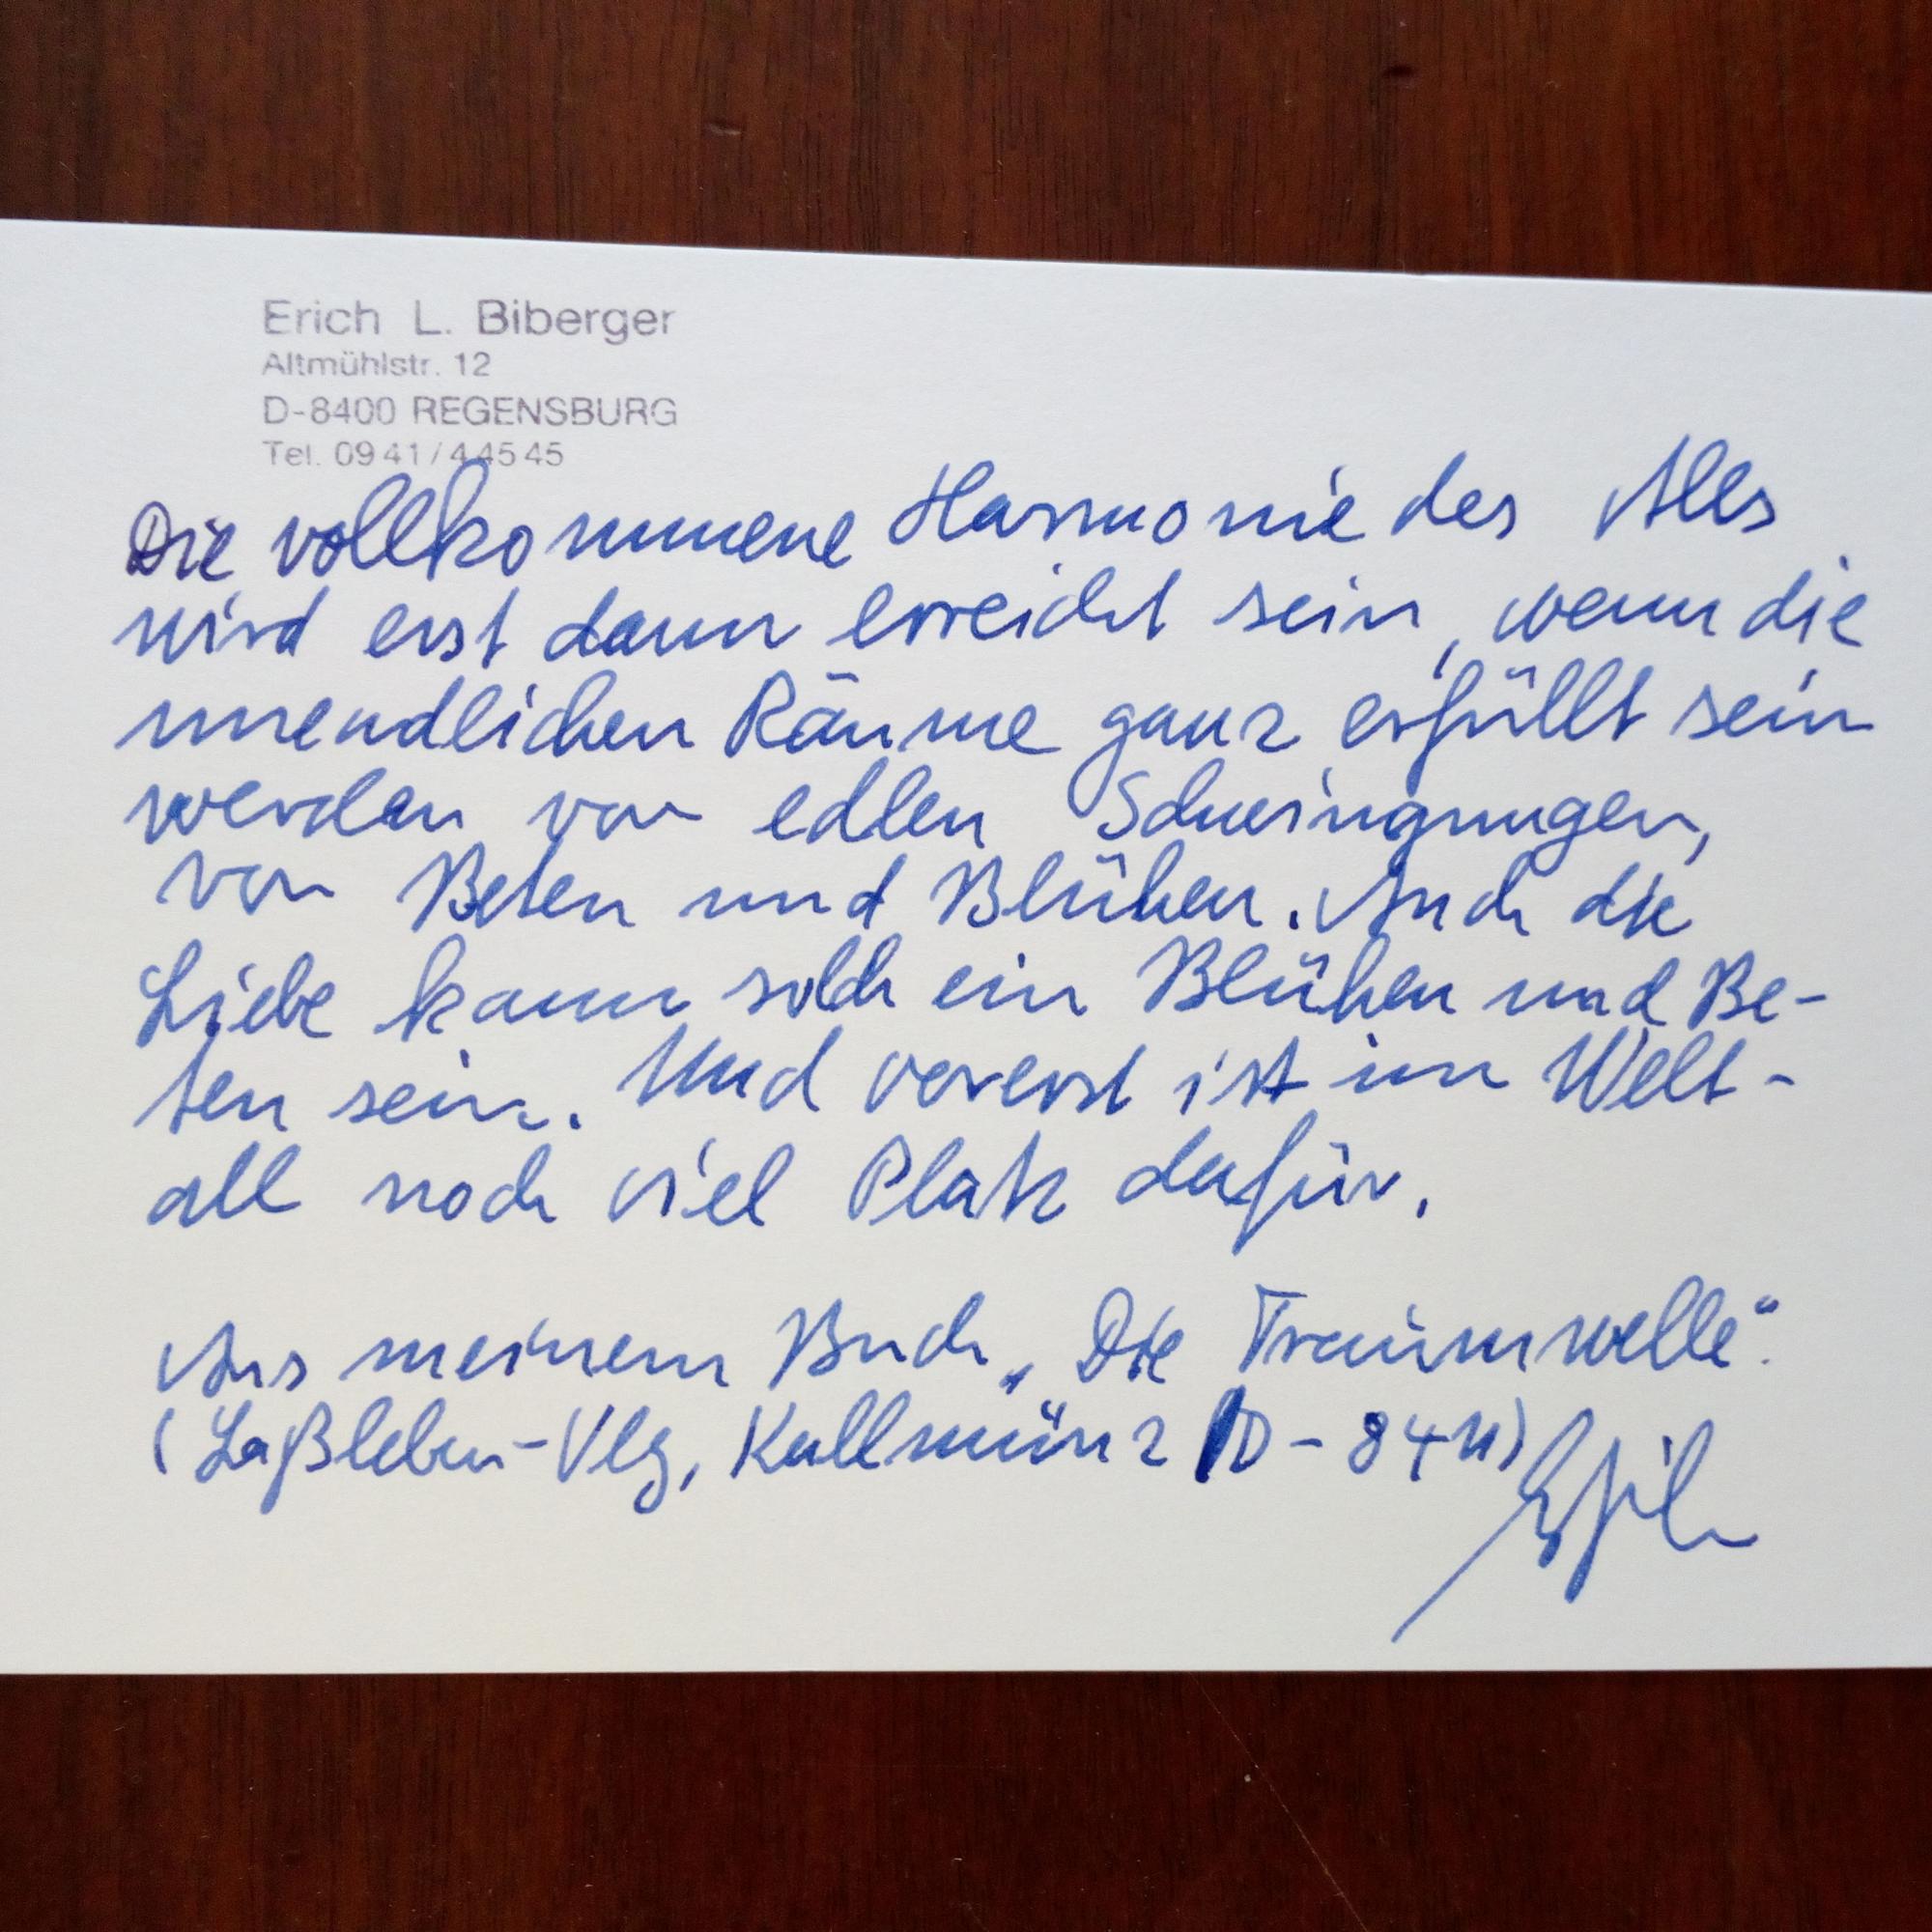 Erich L. Biberger
Altmühlstr. 12
D-8400 REGENSBURG
Tel. 0941/44545
Die vollkommene Harmonie des Alls
wird erst dann erreicht sein, wenn die
unendlichen Räume ganz erfüllt sein
werden von edlen Schwingungen,
von Beten und Blühen. Auch die
Liebe kann solch ein Blühen und Be-
ten sein. Und vorerst ist im Welt-
all noch viel Platz dafür.
Aus meinem Buch „Die Traumwelle“.
(Laßleben-Vlg, Kallmünz D-8411)